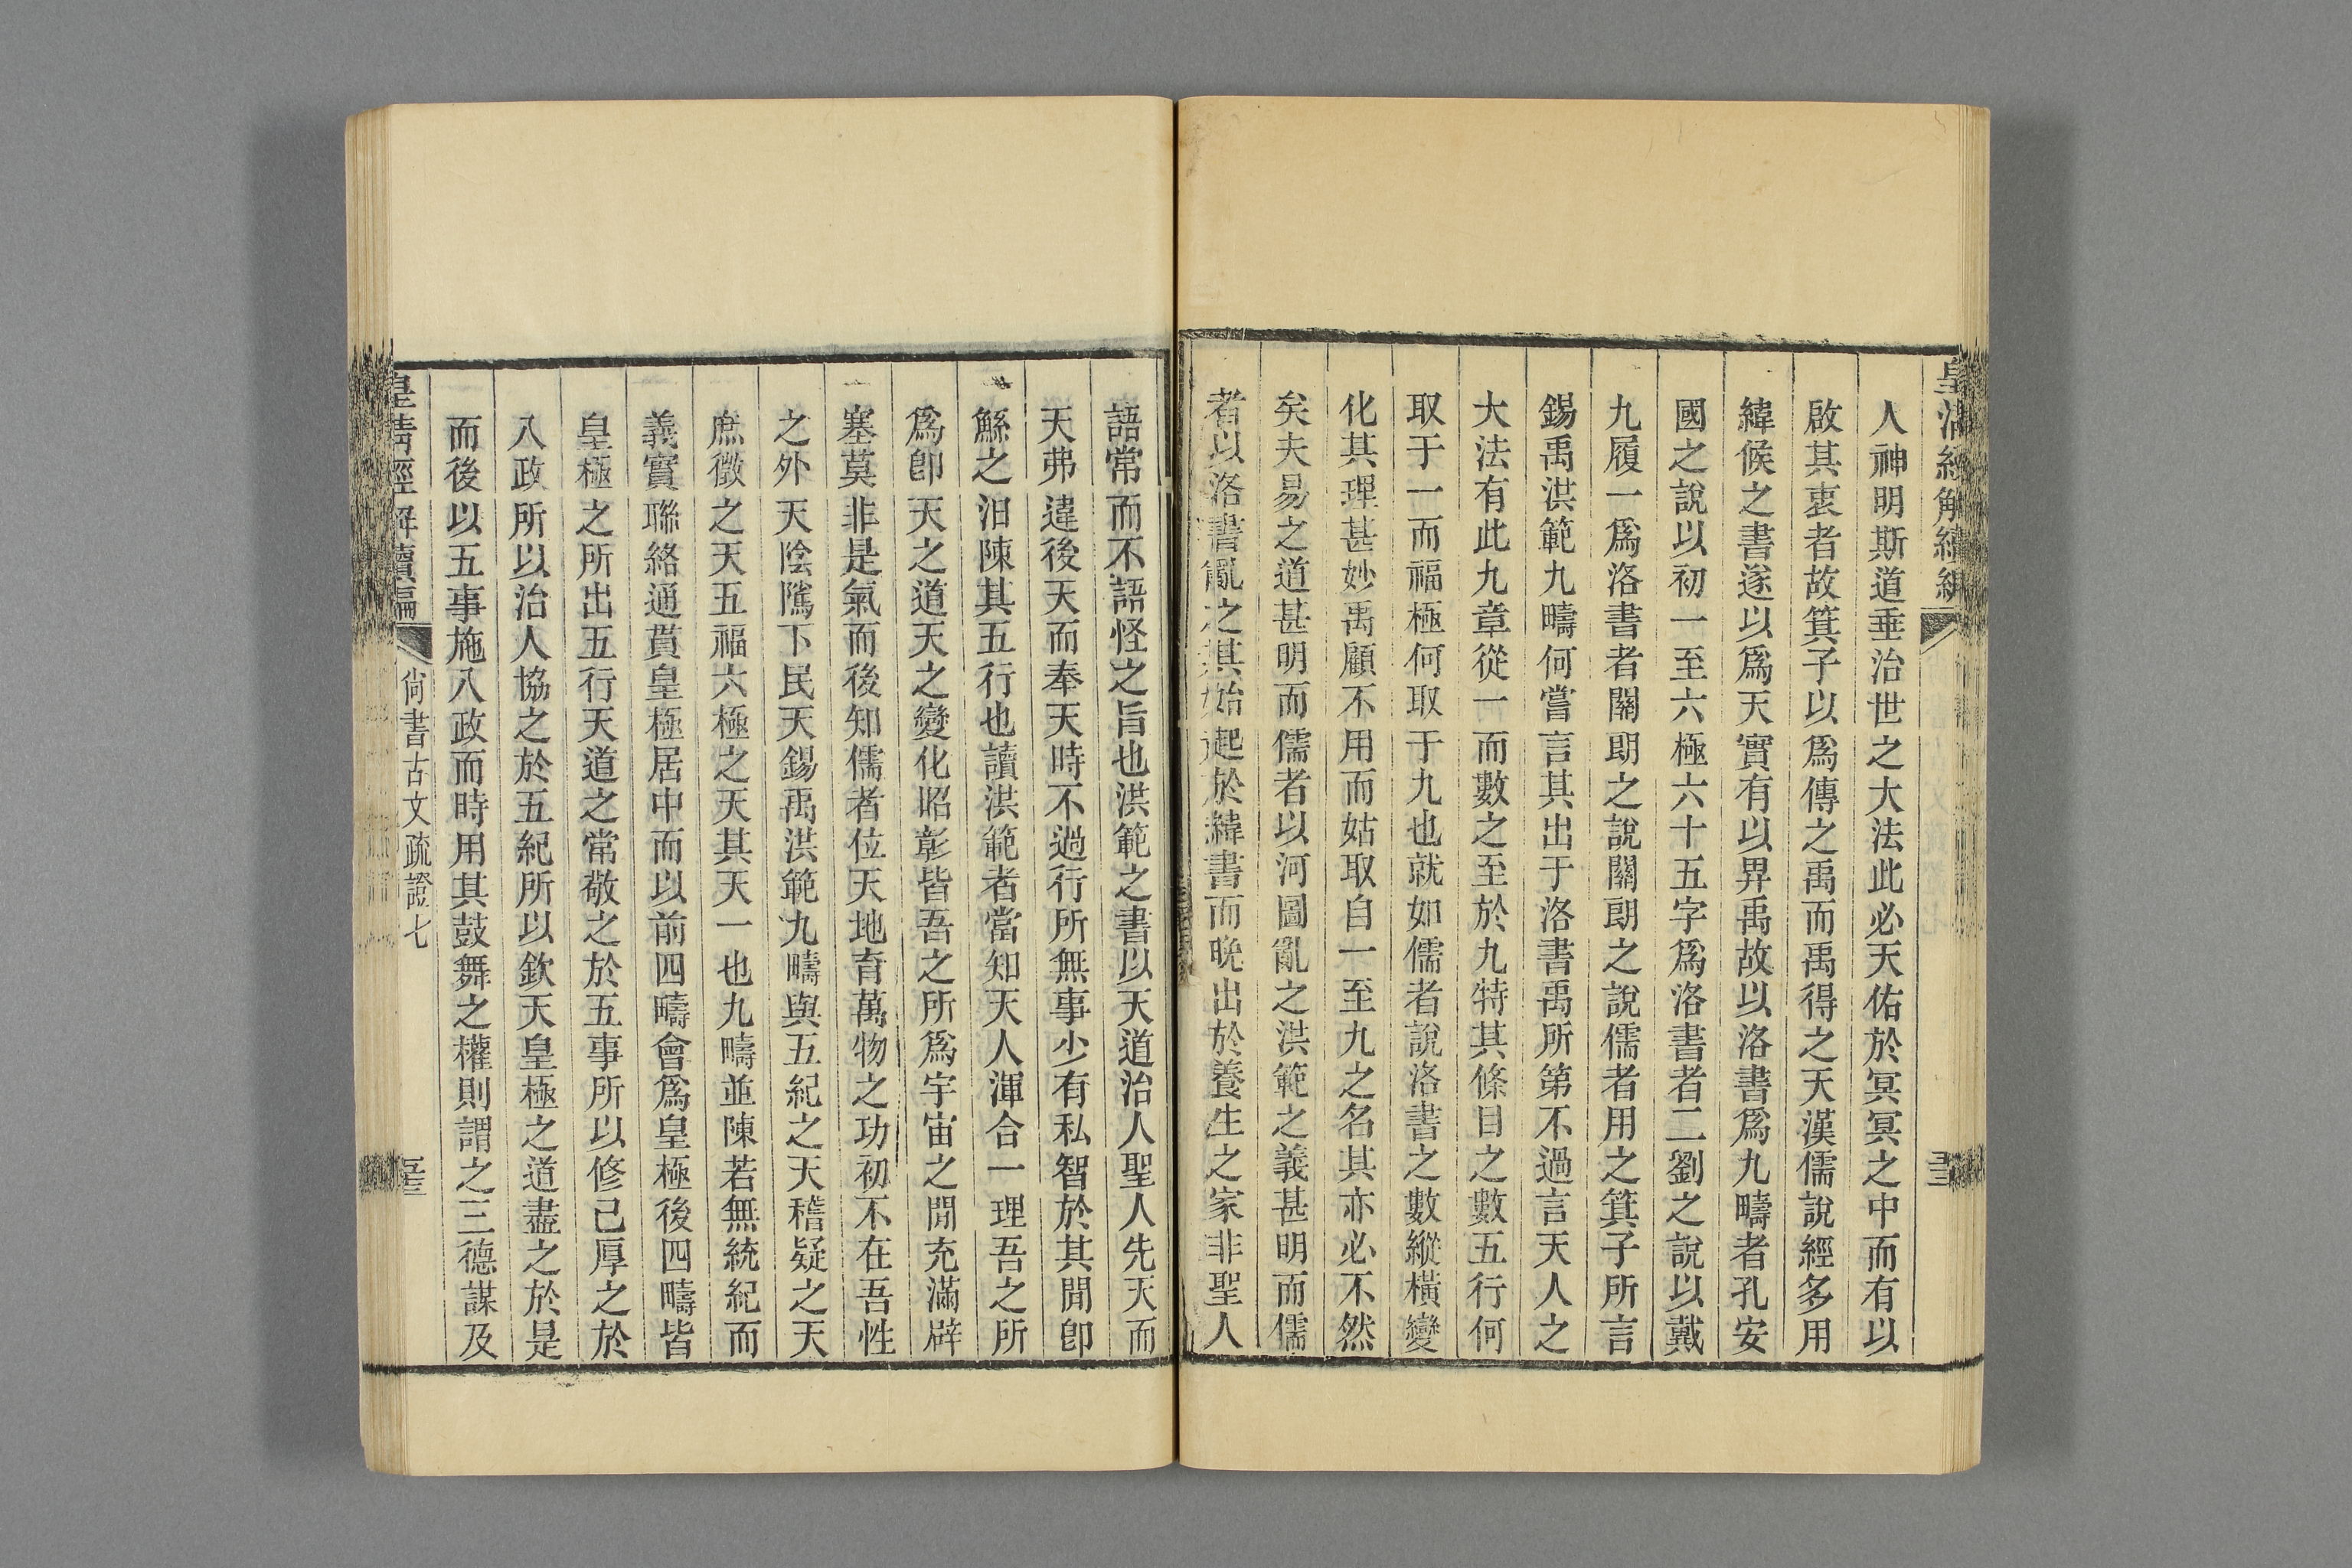 皇清經解續編
人神明斯道垂治世之大法此必天佑於冥冥之中而有以
啟其衷者故箕子以爲傳之禹而禹得之天漢儒說經多用
緯候之書遂以爲天實有以畀禹故以洛書爲九疇者孔安
國之說以初一至六極六十五字爲洛書者二劉之說以戴
九履一爲洛書者關朗之說關朗之說儒者用之箕子所言
錫禹洪範九疇何嘗言其出于洛書禹所第不過言天人之
大法有此九章從一而數之至於九特其條目之數五行何
取于一而福極何取于九也就如儒者說洛書之數縱橫變
化其理甚妙禹顧不用而姑取自一至九之名其亦必不然
矣夫易之道甚明而儒者以河圖亂之洪範之義甚明而儒
者以洛書亂之其始起於緯書而晚出於養生之家非聖人
語常而不語怪之旨也洪範之書以天道治人聖人先天而
天弗違後天而奉天時不過行所無事少有私智於其閒卽
鯀之汩陳其五行也讀洪範者當知天人渾合一理吾之所
爲卽天之道天之變化昭彰皆吾之所爲宇宙之閒充滿辟
塞莫非是氣而後知儒者位天地育萬物之功初不在吾性
之外天陰騭下民天錫禹洪範九疇與五紀之天稽疑之天
庶徵之天五福六極之天其天一也九疇並陳若無統紀而
義實聯絡通貫皇極居中而以前四疇會爲皇極後四疇皆
皇極之所出五行天道之常敬之於五事所以修己厚之於
八政所以治人協之於五紀所以欽天皇極之道盡之於是
而後以五事施八政而時用其鼓舞之權則謂之三德謀及
皇清經解續編
尙書古文疏證七